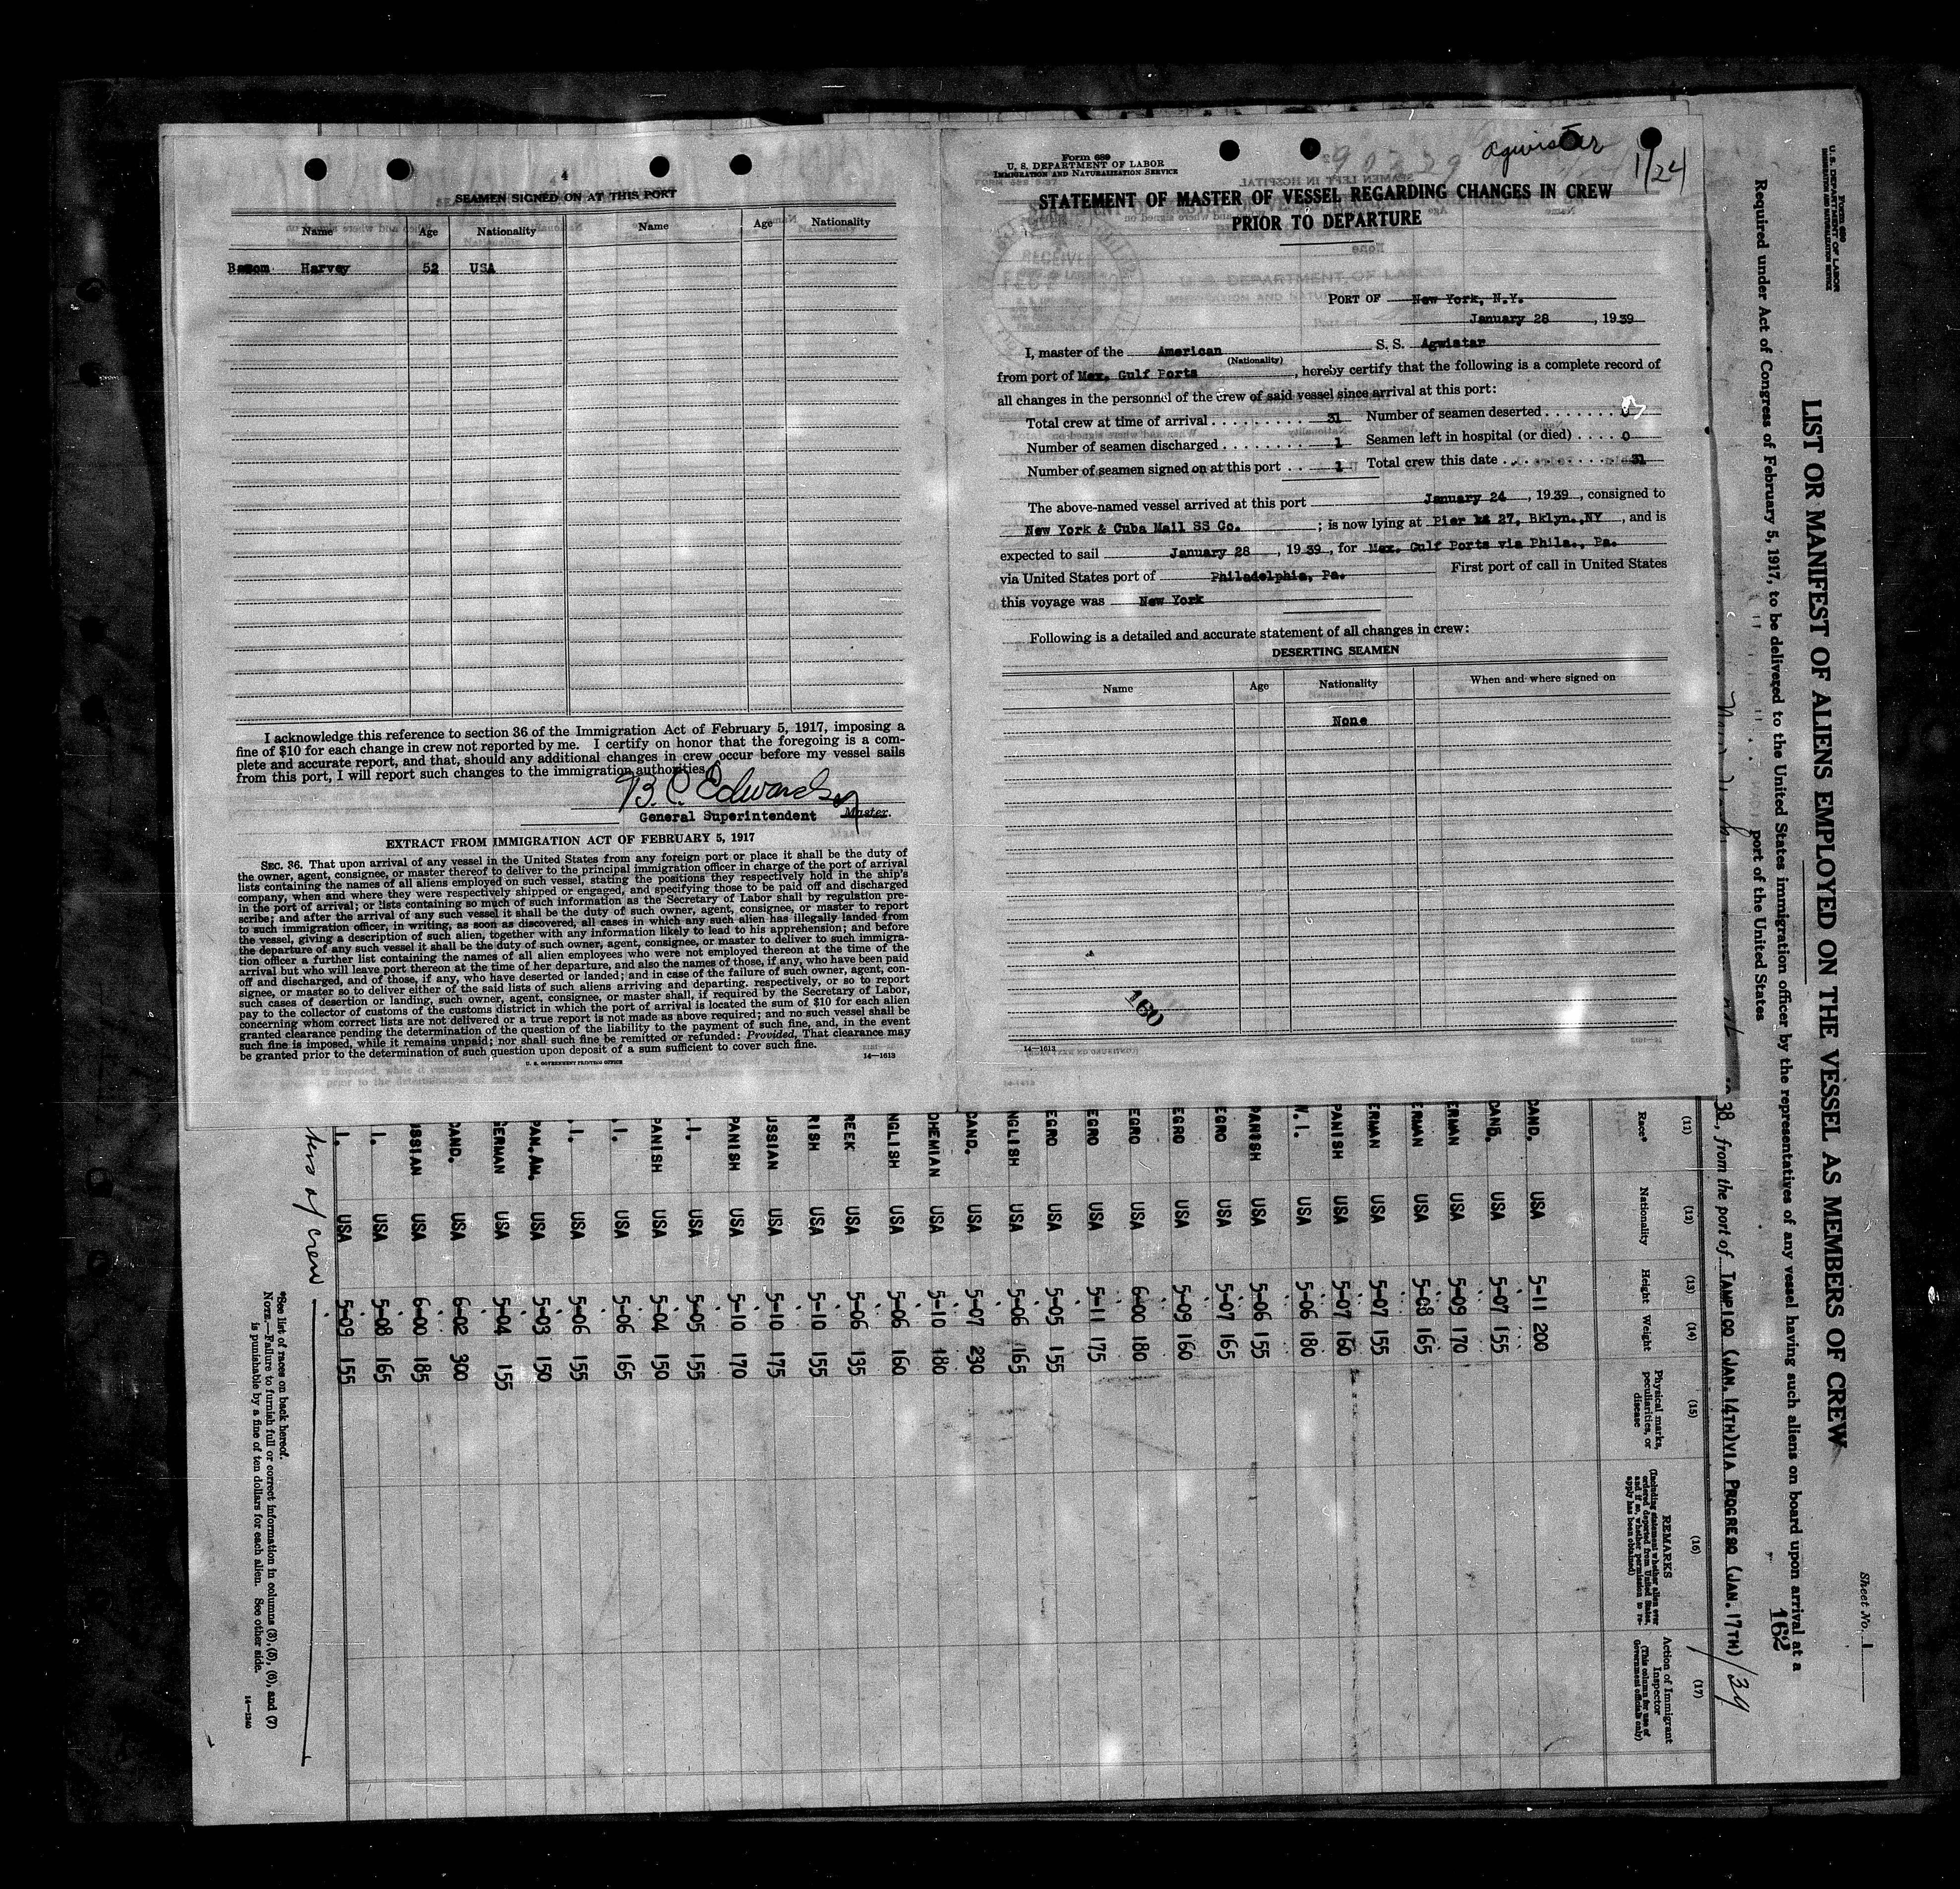 4
SEAMEN SIGNED ON AT THIS PORT
Name Age Nationality Name Age Nationality
Harvey 52 USA
I acknowledge this reference to section 36 of the Immigration Act of February 5, 1917, imposing a
fine of $10 for each change in crew not reported by me. I certify on honor that the foregoing is a com-
plete and accurate report, and that, should any additional changes in crew occur before my vessel sails
from this port, I will report such changes to the immigration authorities.
B. C. Edwards
General Superintendent Master.
EXTRACT FROM IMMIGRATION ACT OF FEBRUARY 5, 1917
SEC. 36. That upon arrival of any vessel in the United States from any foreign port or place it shall be the duty of
the owner, agent, consignee, or master thereof to deliver to the principal immigration officer in charge of the port of arrival
lists containing the names of all aliens employed on such vessel, stating the positions they respectively hold in the ship's
company, when and where they were respectively shipped or engaged, and specifying those to be paid off and discharged
in the port of arrival; or lists containing so much of such information as the Secretary of Labor shall by regulation pre-
scribe; and after the arrival of any such vessel it shall be the duty of such owner, agent, consignee, or master to report
to such immigration officer, in writing, as soon as discovered, all cases in which any such alien has illegally landed from
the vessel, giving a description of such alien, together with any information likely to lead to his apprehension; and before
the departure of any such vessel it shall be the duty of such owner, agent, consignee, or master to deliver to such immigra-
tion officer a further list containing the names of all alien employees who were not employed thereon at the time of the
arrival but who will leave port thereon at the time of her departure, and also the names of those, if any, who have been paid
off and discharged, and of those, if any, who have deserted or landed; and in case of the failure of such owner, agent, con-
signee, or master so to deliver either of the said lists of such aliens arriving and departing. respectively, or so to report
such cases of desertion or landing, such owner, agent, consignee, or master shall, if required by the Secretary of Labor,
pay to the collector of customs of the customs district in which the port of arrival is located the sum of $10 for each alien
concerning whom correct lists are not delivered or a true report is not made as above required; and no such vessel shall be
granted clearance pending the determination of the question of the liability to the payment of such fine, and, in the event
such fine is imposed, while it remains unpaid; nor shall such fine be remitted or refunded: Provided, That clearance may
be granted prior to the determination of such question upon deposit of a sum sufficient to cover such fine.
U. S. GOVERNMENT PRINTING OFFICE 14—1613
Agwistar
1/24
Form 689
U. S. DEPARTMENT OF LABOR
IMMIGRATION AND NATURALIZATION SERVICE
STATEMENT OF MASTER OF VESSEL REGARDING CHANGES IN CREW
PRIOR TO DEPARTURE
PORT OF New York, N.Y.
January 28, 1939
I, master of the American S. S. Agwistar
(Nationality)
from port of Mex. Gulf Ports, hereby certify that the following is a complete record of
all changes in the personnel of the crew of said vessel since arrival at this port:
Total crew at time of arrival 31 Number of seamen deserted
Number of seamen discharged 1 Seamen left in hospital (or died) 0
Number of seamen signed on at this port 1 Total crew this date 31
The above-named vessel arrived at this port January 24, 1939, consigned to
New York & Cuba Mail SS Co. ; is now lying at Pier 27, Bklyn.,NY, and is
expected to sail January 28, 1939, for Mex. Gulf Ports via Phila., Pa.
via United States port of Philadelphia, Pa. First port of call in United States
this voyage was New York
Following is a detailed and accurate statement of all changes in crew:
DESERTING SEAMEN
Name Age Nationality When and where signed on
None
160
14—1613
Form 680
U. S. DEPARTMENT OF LABOR
IMMIGRATION AND NATURALIZATION SERVICE
Sheet No. 1
LIST OR MANIFEST OF ALIENS EMPLOYED ON THE VESSEL AS MEMBERS OF CREW
Required under Act of Congress of February 5, 1917, to be delivered to the United States immigration officer by the representatives of any vessel having such aliens on board upon arrival at a
port of the United States
162
38, from the port of TAMPICO (JAN. 14TH) VIA PROGRESO (JAN. 17TH) /39
(11) (12) (13) (14) (15) (16) (17)
Race* Nationality Height Weight Physical marks, peculiarities, or disease REMARKS (Including statement whether alien ever ordered deported from United States, and if so, whether permission to reapply has been obtained) Action of Immigrant Inspector (This column for use of Government officials only)
CAND. USA 5-11 200
CAND. USA 5-07 155
ERMAN USA 5-09 170
ERMAN USA 5-08 165
ERMAN USA 5-07 155
PANISH USA 5-07 160
W.I. USA 5-06 180
PANISH USA 5-06 155
EGRO USA 5-07 165
EGRO USA 5-09 160
EGRO USA 6-00 180
EGRO USA 5-11 175
EGRO USA 5-05 155
NGLISH USA 5-06 165
CAND. USA 5-07 230
OHEMIAN USA 5-10 180
NGLISH USA 5-06 160
REEK USA 5-06 135
RISH USA 5-10 155
USSIAN USA 5-10 175
PANISH USA 5-10 170
.I. USA 5-05 155
PANISH USA 5-04 150
.I. USA 5-06 165
.I. USA 5-06 155
PAN.AM. USA 5-03 150
GERMAN USA 5-04 155
CAND. USA 6-02 300
USSIAN USA 6-00 185
I. USA 5-08 165
I. USA 5-09 155
of crew
*See list of races on back hereof.
NOTE.—Failure to furnish full or correct information in columns (3), (5), (6), and (7)
is punishable by a fine of ten dollars for each alien. See other side.
14—1240